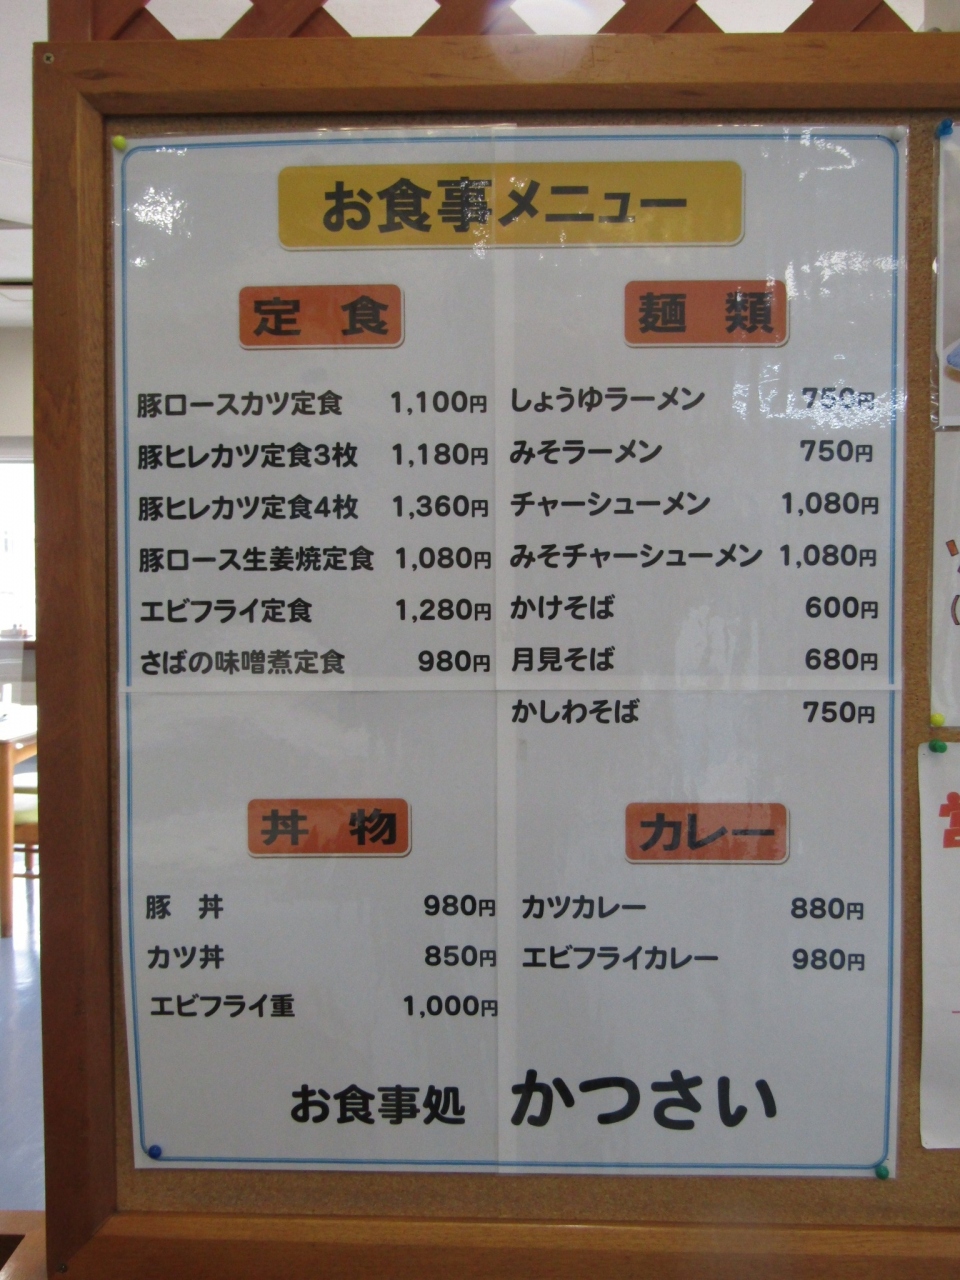 お食事メニュー
定食
豚ロースカツ定食 1,100円
豚ヒレカツ定食3枚 1,180円
豚ヒレカツ定食4枚 1,360円
豚ロース生姜焼定食 1,080円
エビフライ定食 1,280円
さばの味噌煮定食 980円
麺類
しょうゆラーメン 750円
みそラーメン 750円
チャーシューメン 1,080円
みそチャーシューメン 1,080円
かけそば 600円
月見そば 680円
かしわそば 750円
丼物
豚丼 980円
カツ丼 850円
エビフライ重 1,000円
カレー
カツカレー 880円
エビフライカレー 980円
お食事処 かつさい